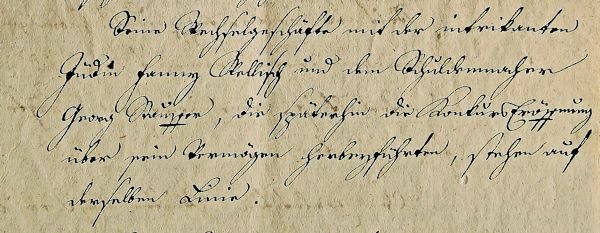 Seine Wechselgeschäfte mit der intrikanten
Jüdin Fanny Kellisch und dem Schuldenmacher
Georg Stauffer, die späterhin die Konkurs Eröffnung
über sein Vermögen herbeyführten, stehen auf
derselben Linie.